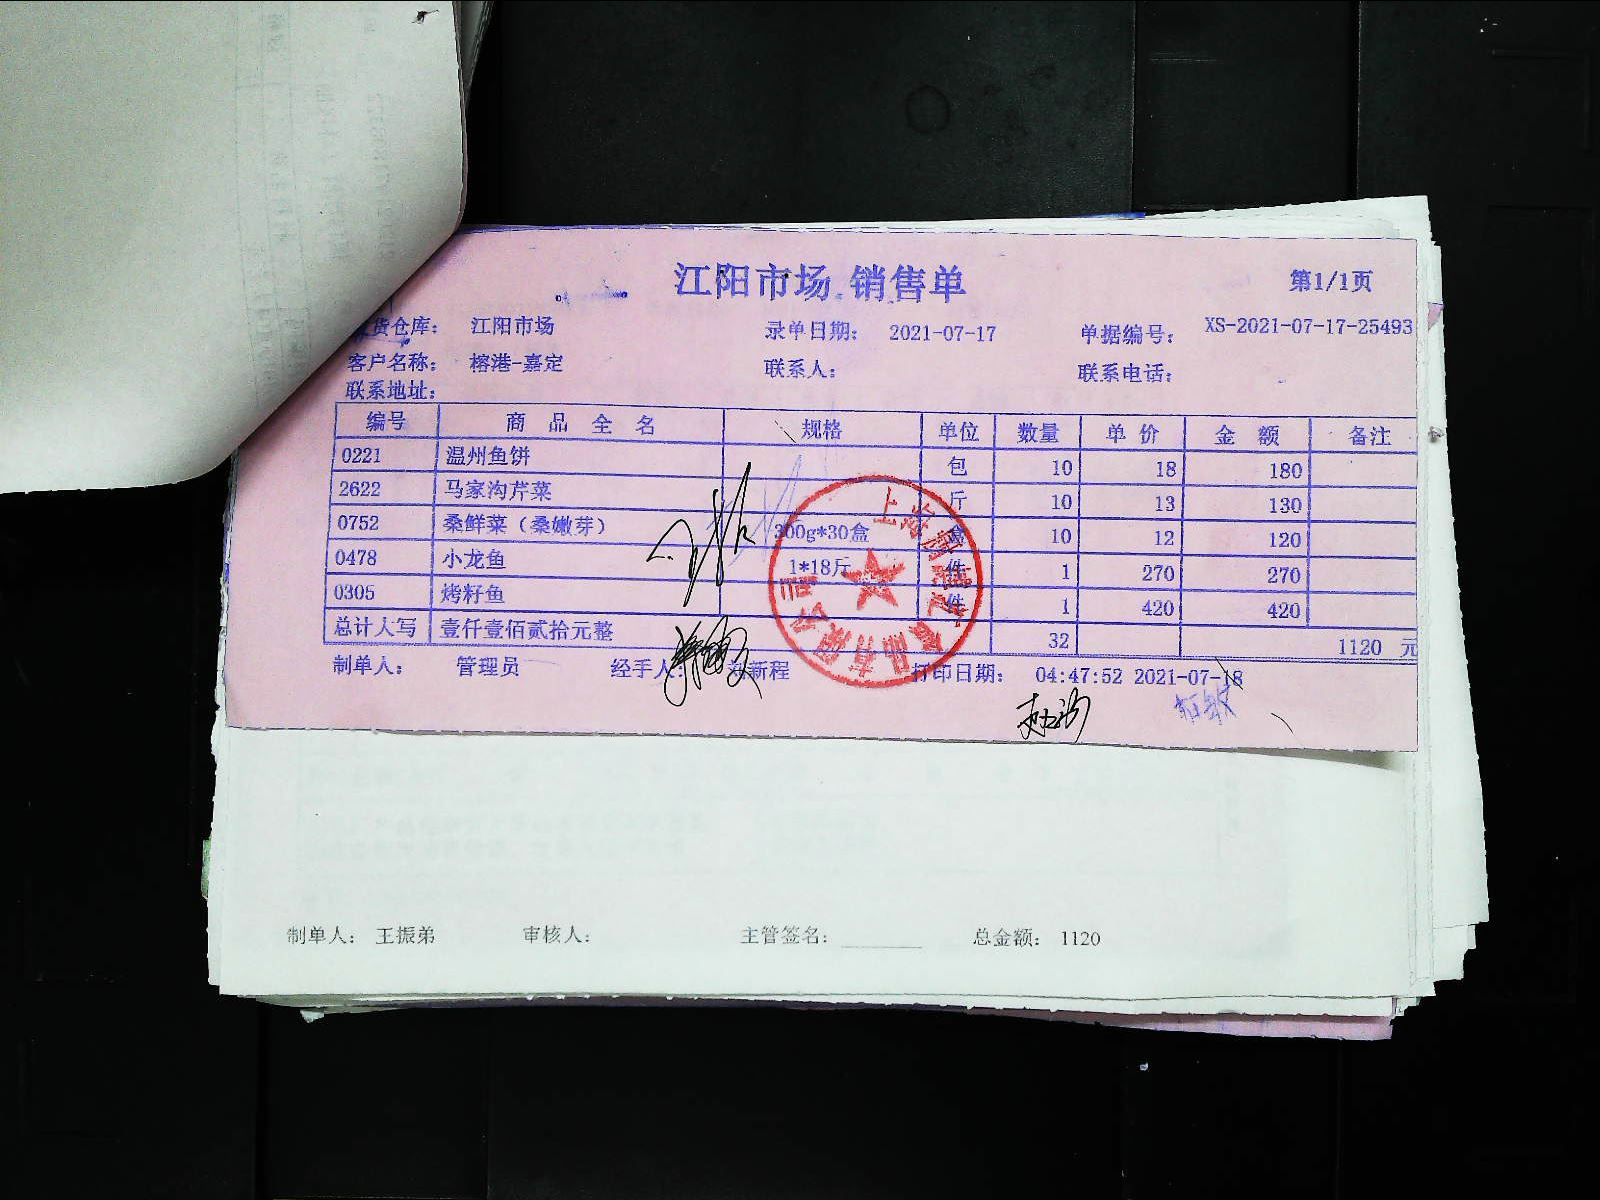 江阳市场 销售单
第1/1页
货仓库： 江阳市场 录单日期： 2021-07-17 单据编号： XS-2021-07-17-25493
客户名称： 榕港-嘉定 联系人： 联系电话：
联系地址：
编号 商品全名 规格 单位 数量 单价 金额 备注
0221 温州鱼饼 包 10 18 180
2622 马家沟芹菜 斤 10 13 130
0752 桑鲜菜（桑嫩芽） 300g*30盒 盒 10 12 120
0478 小龙鱼 1*18斤 件 1 270 270
0305 烤籽鱼 件 1 420 420
总计大写 壹仟壹佰贰拾元整 32 1120 元
制单人： 管理员 经手人： 新程 打印日期： 04:47:52 2021-07-18
制单人： 王振弟 审核人： 主管签名： 总金额： 1120